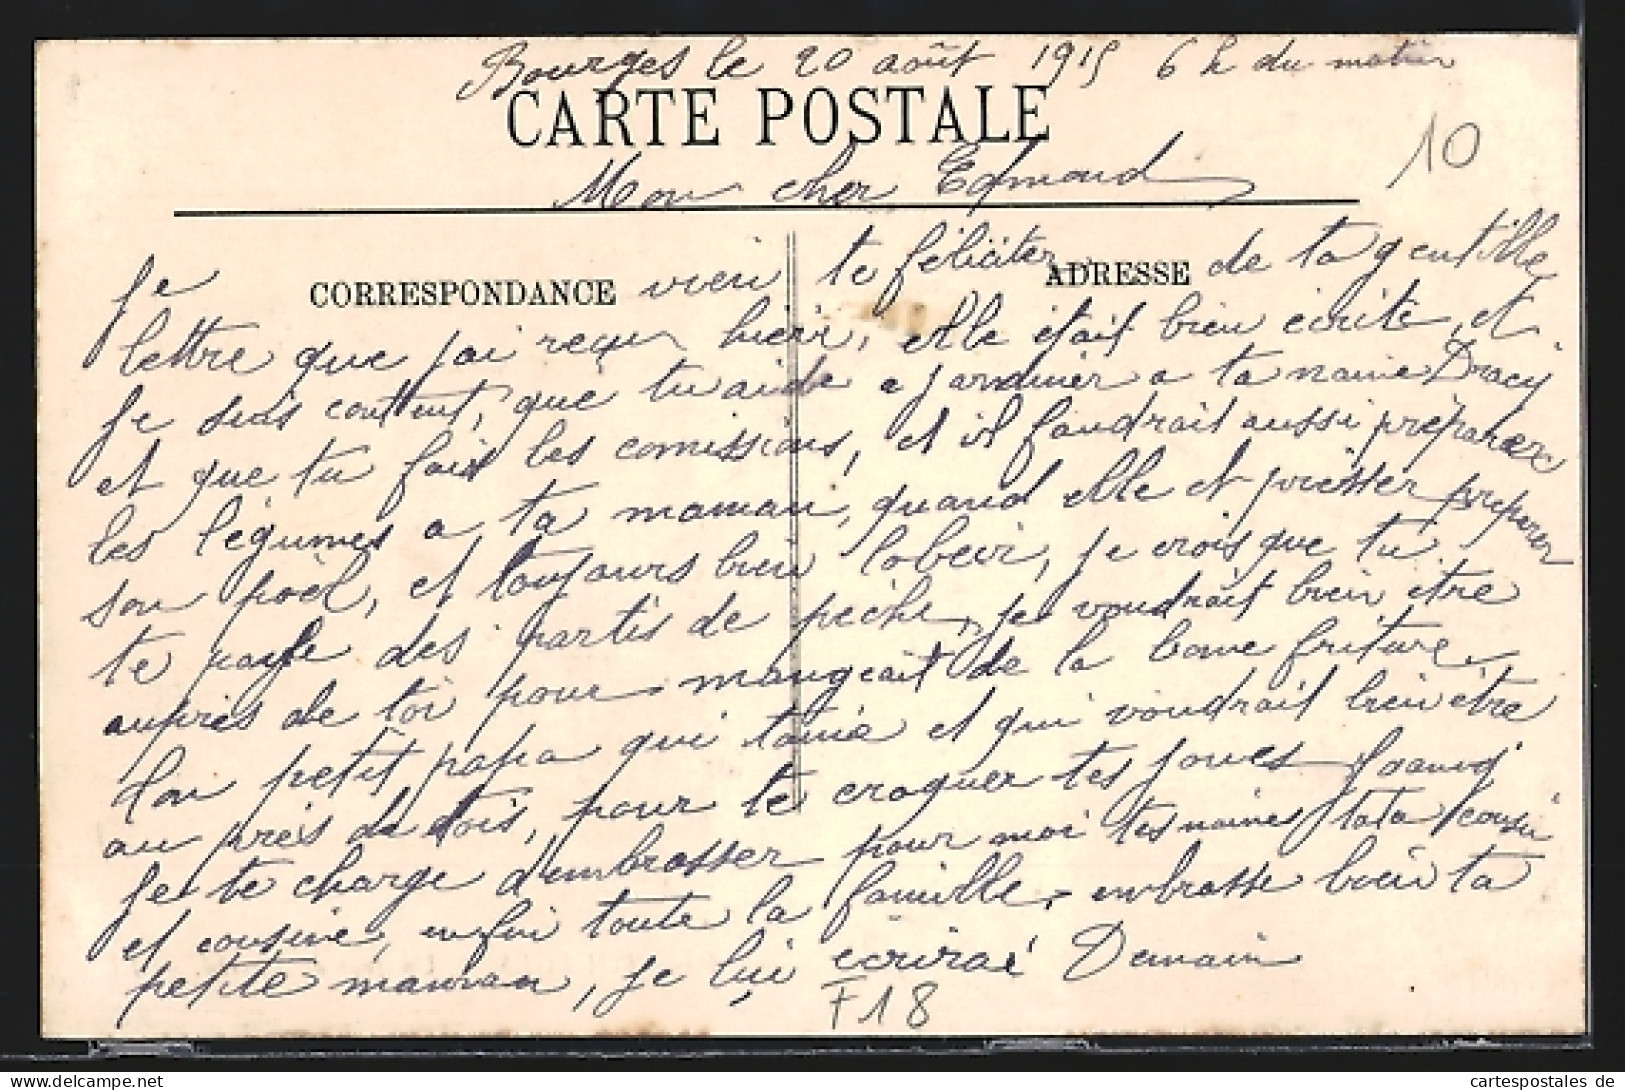 Bourges le 20 août 1915 6 h du matin
CARTE POSTALE
10
Mon cher Edmond
CORRESPONDANCE
ADRESSE
Je vien te féliciter de ta gentille
lettre que j'ai reçu hierr, elle était bien écrite, et
Je suis contient, que tu aide a jardiner a ta naine Dracy
et que tu fais les comissions, et il faudrait aussi préparer
les légumes a ta maman, quand elle et presser préparer
son poël, et toujours bien l'obeir, je crois que tu
te paye des partis de pêche, je voudrait bien être
auprès de toi pour mangeait de la bonne friture
Ton petit papa qui t'aime et qui voudrait bien être
au près de tois, pour te croquer tes joues
Je te charge d'embrasser pour moi tes naines tata cousin
et cousine, enfin toute la famille, embrasse bien ta
petite maman, je lui écrirai Demain
F18
cartespostales de